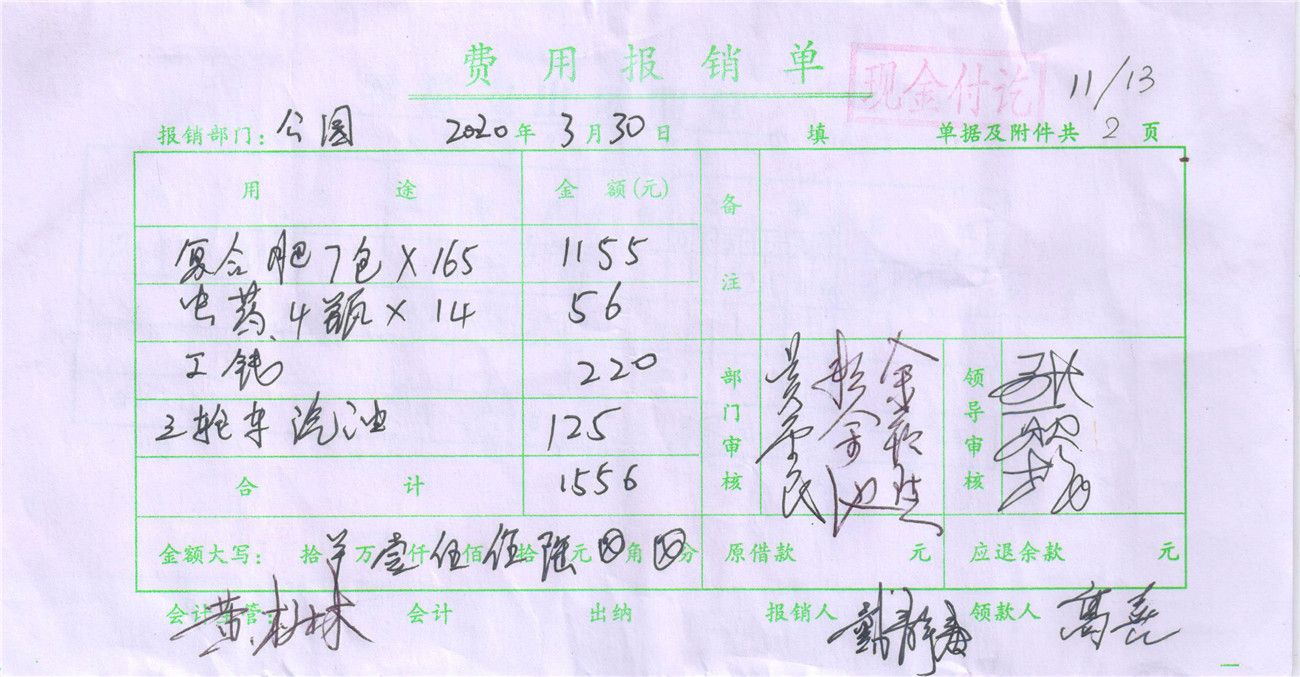 费用报销单
现金付讫
11/13
报销部门：公园 2020年3月30日 填 单据及附件共2页
用途 金额(元) 备注
复合肥7包×165 1155
虫药4瓶×14 56
工钱 220
三轮车汽油 125
合计 1556
部门审核 领导审核
金额大写： 拾 万壹仟伍佰伍拾陆元⊗角⊗分 原借款 元 应退余款 元
会计主管： 会计 出纳 报销人 领款人